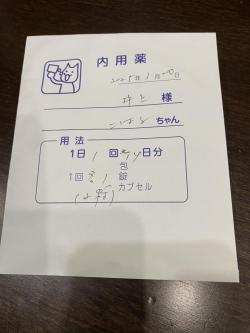 内用薬
2025年1月 日
井上 様
こはる ちゃん
用法
1日 1 回 14日分
包
1回 1 錠
カプセル